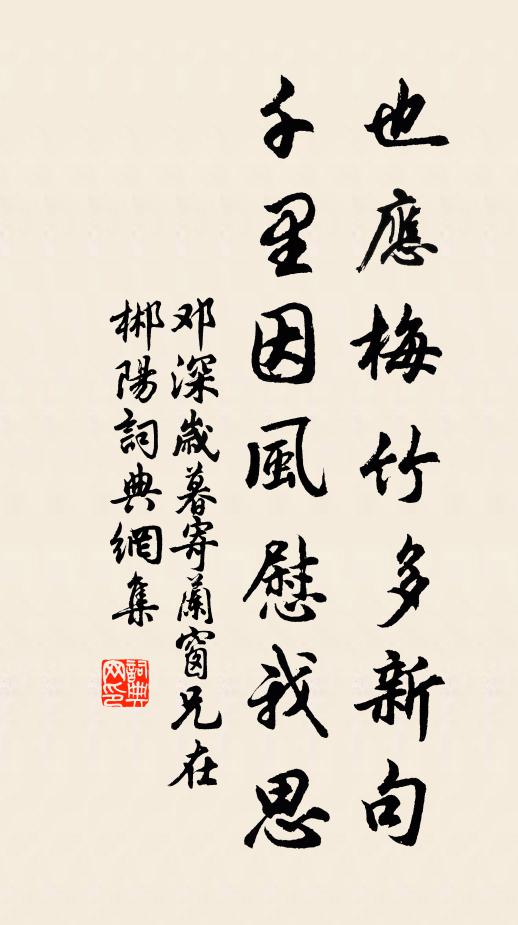 也應梅竹多新句
千里因風慰我思
邓深歲暮寄蘭窗兄在
郴陽詞典網集
詞典
网印